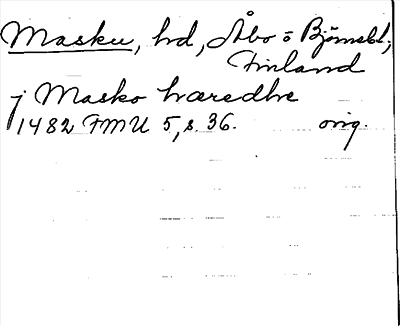 Masku, hd, Åbo o Björnebl,
Finland
j Masko hæredhe
1482 FMU 5, s. 36. orig.